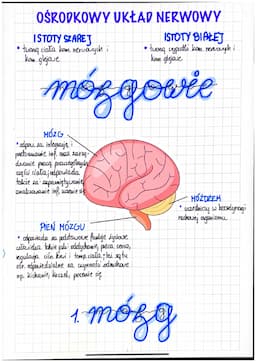 OŚRODKOWY UKŁAD NERWOWY
ISTOTY SZAREJ
* tworzą ciała kom. nerwowych i
kom. glejowe
ISTOTY BIAŁEJ
* tworzą wypustki kom. nerwowych i
kom. glejowe
mózgowie
MÓZG
* odpow. za integrację i
przetwarzanie inf. oraz zarzą-
dzanie pracą poszczególnych
części ciała; odpowiada
także za zapamiętywanie
MÓŻDŻEK
* uczestniczy w koordynacji
ruchowej organizmu.
PIEŃ MÓZGU
* odpowiada za podstawowe funkcje życiowe
człowieka takie jak: oddychanie, praca serca,
regulacja ciśn. krwi i temp. ciała; też są tu
ośr. odpowiedzialne za czynności odruchowe
np. kichanie, kaszel, pocenie się
1. mózg